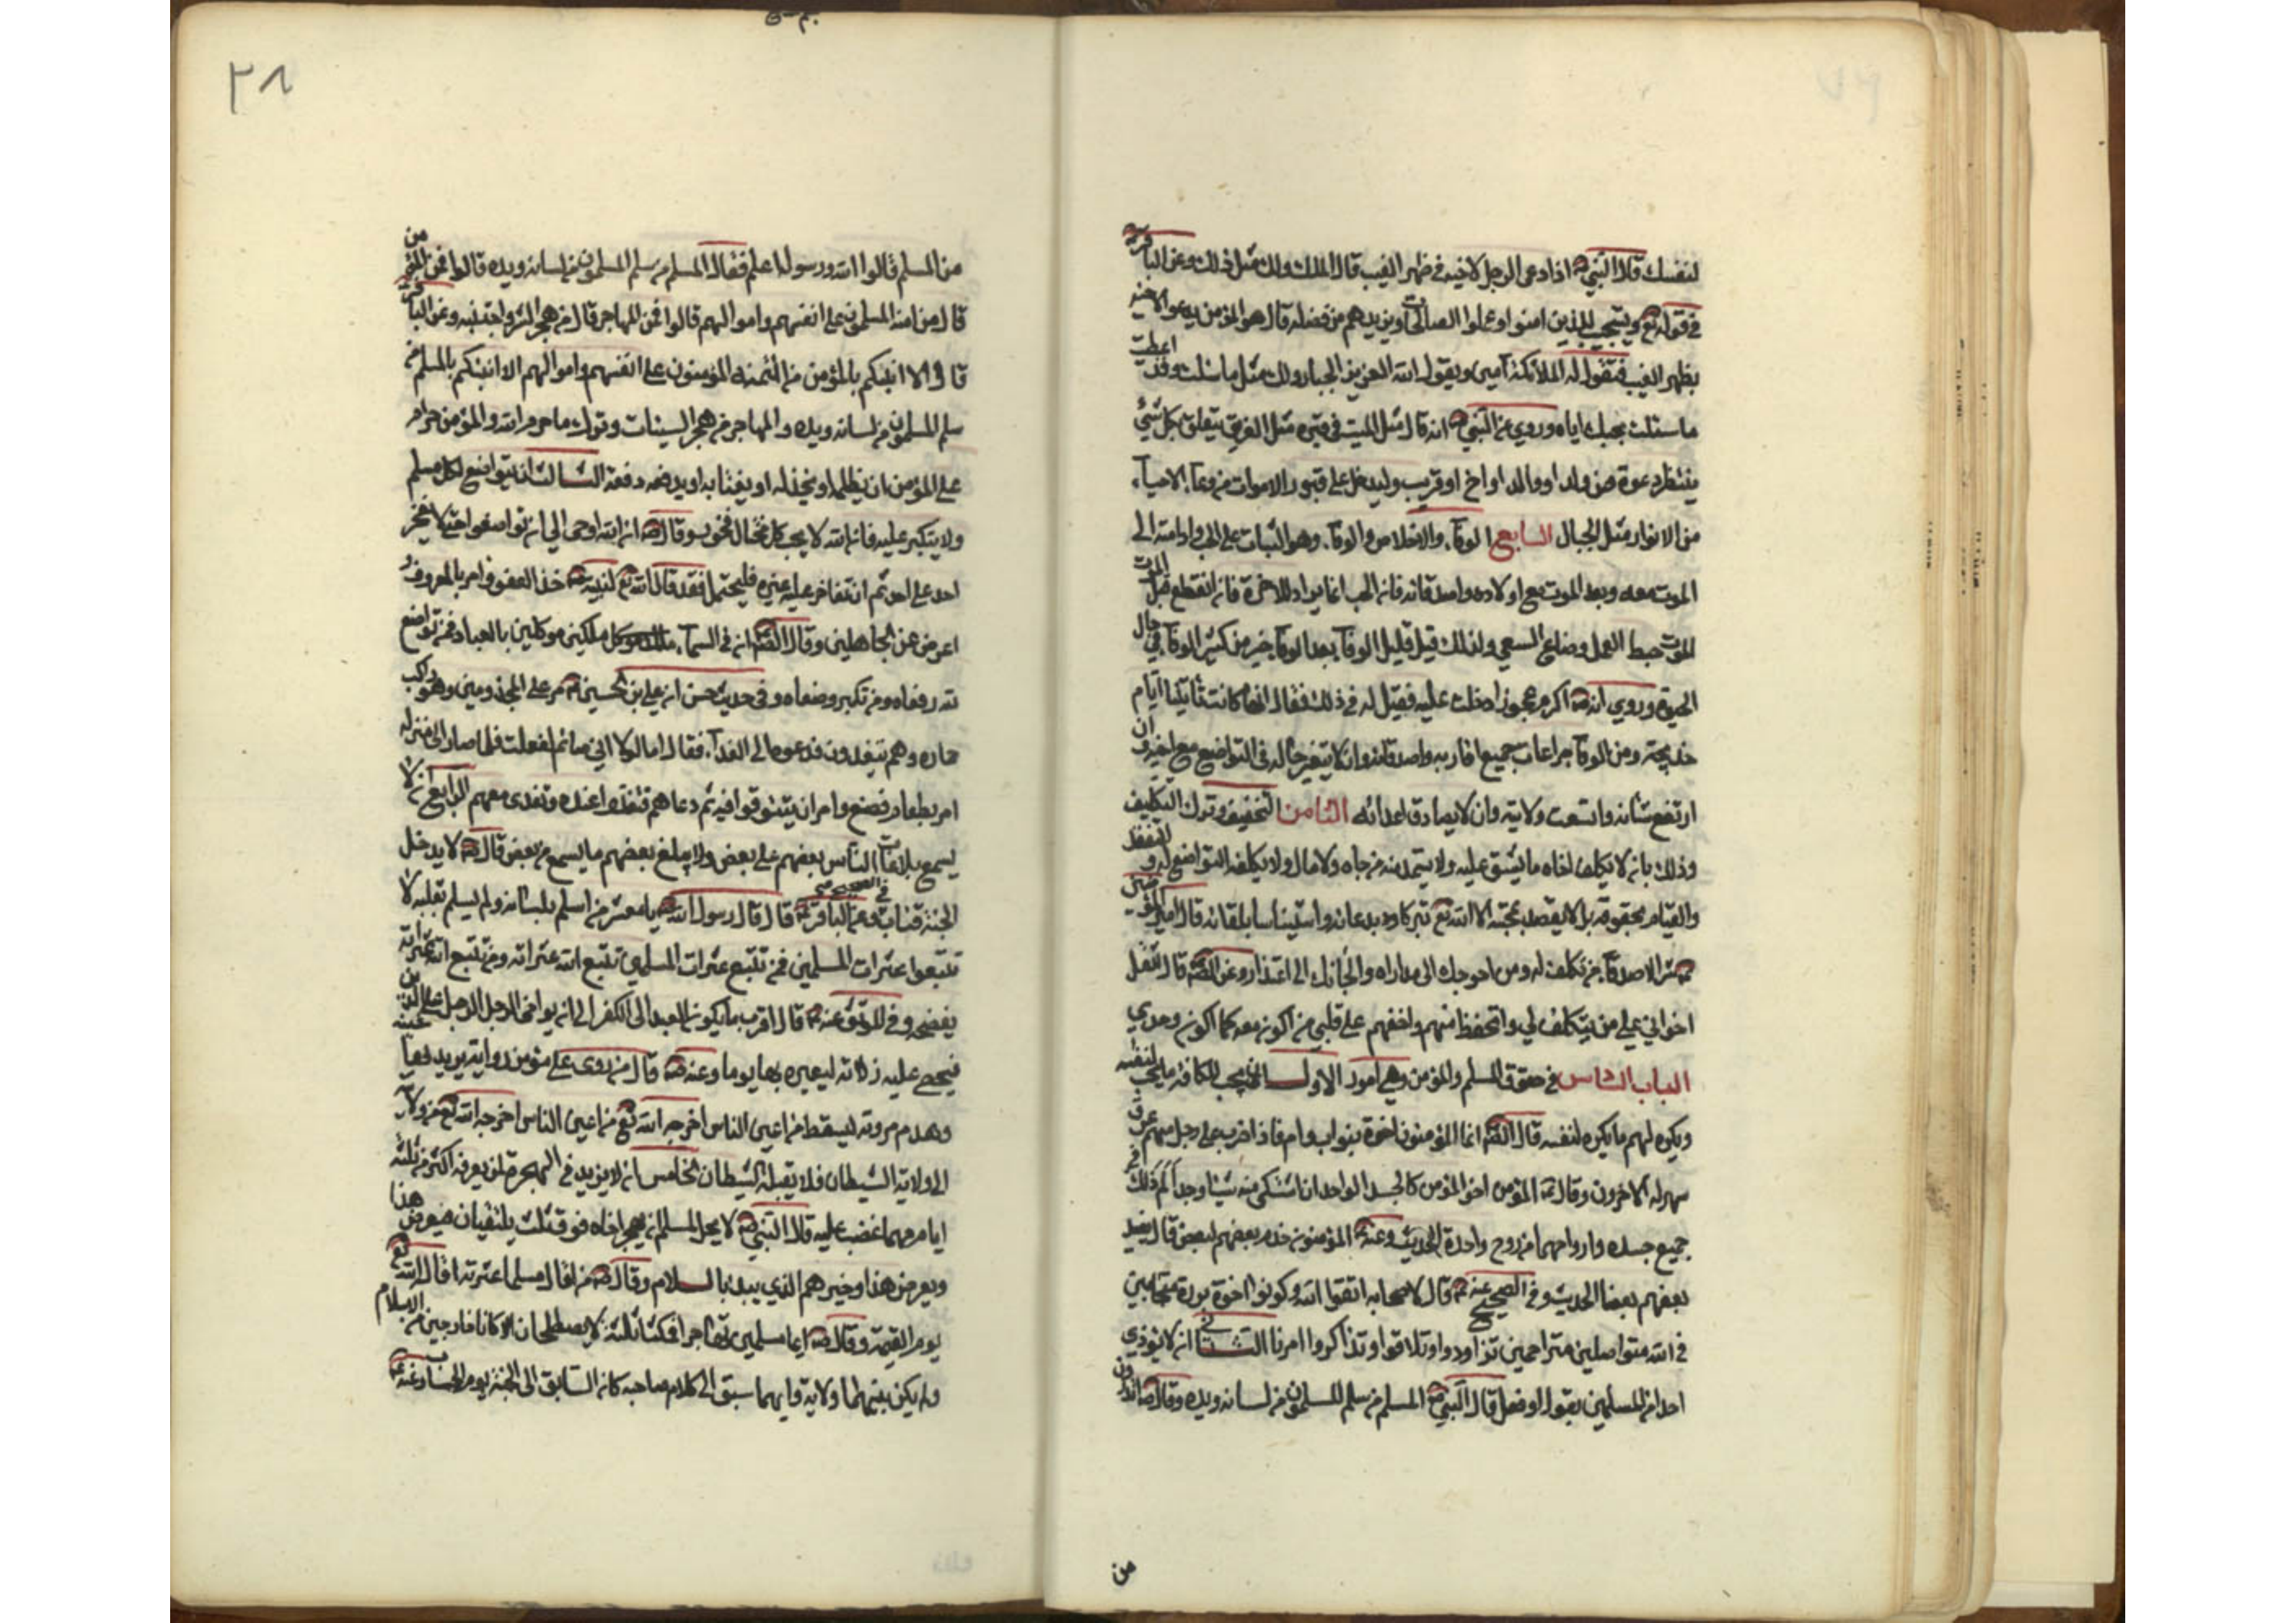 لنفسك قال النبي ص اذا دعى الرجل لاخيه في ظهر الغيب قال الملك ولك مثل ذلك وعن الباقر ع
في قوله تع ويستجيب للذين امنوا وعملوا الصالحات ويزيدهم من فضله قال هو المؤمن يدعو لاخيه
بظهر الغيب فتقول له الملائكة آمين ويقول الله العزيز الجبار ولك مثل ما سئلت وقد اعطيت
ما سئلت بحبك اياه وروي عن النبي ص انه قال مثل الميت في قبره مثل الغريق يتعلق بكل شيء
ينتظر دعوة من ولد او والد او اخ او قريب وليدخل على قبور الاموات من دعاء الاحياء
من الانوار مثل الجبال السابع الوفاء والاخلاص والوفاء وهو الثبات على الحب وادامته الى
الموت معه وبعد الموت مع اولاده واصدقائه فان الحب انما يراد للاخرة فان انقطع قبل الموت
الموت حبط العمل وضاع السعي ولذلك قيل قليل الوفاء بعد الوفاة خير من كثير الوفاء في حال
الحيوة وروي انه ص اكرم عجوزا دخلت عليه فقيل له في ذلك فقال انها كانت تاتينا ايام
خديجة ومن الوفاء مراعات جميع اقاربه واصدقائه وان لا يتغير حاله في التواضع مع اخيه وان
ارتفع شانه واتسعت ولايته وان لا يصادق اعدائه الثامن التخفيف وترك التكليف
وذلك بان لا يكلف اخاه ما يشق عليه ولا يستمد منه من جاه ولا مال ولا يكلفه التواضع له والتفقد
والقيام بحقوقه بل لا يقصد بمحبته الا الله تع تبركا بدعائه واستيناسا بلقائه قال امير المؤمنين
شر الاصدقاء من تكلف له ومن احوجك الى مداراه والجاك الى اعتذار وعن الصادق ع قال اثقل
اخواني علي من يتكلف لي واتحفظ منهم واخفهم على قلبي من اكون معه كما اكون وحدي
الباب الثامن في حقوق المسلم والمؤمن وهي امور الاول ان يحب للكافة ما يحب لنفسه
ويكره لهم ما يكره لنفسه قال الصادق ع انما المؤمنون اخوة بنو اب وام فاذا ضرب على رجل منهم عرق
سهر له الاخرون وقال ع المؤمن اخو المؤمن كالجسد الواحد ان اشتكى منه شيئا وجد الم ذلك في
جميع جسده وارواحهما من روح واحدة الحديث وعنه ع المؤمنون خدم بعضهم لبعض قال يفيد
بعضهم بعضا الحديث وفي الصحيح عنه ع قال لاصحابه اتقوا الله وكونوا اخوة بررة متحابين
في الله متواصلين متراحمين تزاوروا وتلاقوا وتذاكروا امرنا الثاني ان لا يؤذي
احدا من المسلمين بقول او فعل قال النبي ص المسلم من سلم المسلمون من لسانه ويده وقال ص اتدرون
من
٢٨
من المسلم قالوا الله ورسوله اعلم فقال المسلم من سلم المسلمون من لسانه ويده قالوا فمن المؤمن
قال من امنه المسلمون على انفسهم واموالهم قالوا فمن المهاجر قال من هجر الشر واجتنبه وعن الباقر ع
قال الا انبئكم بالمؤمن من ائتمنه المؤمنون على انفسهم واموالهم الا انبئكم بالمسلم من
سلم المسلمون من لسانه ويده والمهاجر من هجر السيئات وترك ما حرم الله والمؤمن حرام
على المؤمن ان يظلمه او يخذله او يغتابه او يدفعه دفعة الثالث ان يتواضع لكل مسلم
ولا يتكبر عليه فان الله لا يحب كل مختال فخور وقال ص ان الله اوحى الي ان تواضعوا حتى لا يفخر
احد على احد ثم ان تفاخر عليه غيره فليحتمل فقد قال الله تع لنبيه ص خذ العفو وامر بالمعروف و
اعرض عن الجاهلين وقال الصادق ع ان في السماء ملكين موكلين بالعباد فمن تواضع
لله رفعاه ومن تكبر وضعاه وفي حديث حسن ان علي بن الحسين ع مر على المجذومين وهو راكب
حماره وهم يتغدون فدعوه الى الغداء فقال اما لولا اني صائم لفعلت فلما صار الى منزله
امر بطعام فصنع وامر ان يتنوقوا فيه ثم دعاهم فتغدوا عنده وتغدى معهم الرابع ان لا
يسمع بلاغات الناس بعضهم على بعض ولا يبلغ بعضهم ما يسمع من بعض قال ص لا يدخل
الجنة قتات وفي الصحيح عن الباقر ع قال قال رسول الله ص يا معشر من اسلم بلسانه ولم يسلم بقلبه لا
تتبعوا عثرات المسلمين فمن تتبع عثرات المسلمين تتبع الله عثراته ومن تتبع الله عثراته
يفضحه وفي الموثق عنه ع قال اقرب ما يكون العبد الى الكفر ان يواخي الرجل الرجل على الدين
فيحصي عليه زلاته ليعيره بها يوما وعنه ع قال من روى على مؤمن رواية يريد بها عيبه
وهدم مروته ليسقط من اعين الناس اخرجه الله تع من اعين الناس اخرجه الله تع من ولايته
الى ولاية الشيطان فلا يقبله الشيطان الخامس ان لا يزيد في الهجرة لمن يعرفه اكثر من ثلثة
ايام مهما غضب عليه قال النبي ص لا يحل لمسلم ان يهجر اخاه فوق ثلث يلتقيان فيعرض هذا
ويعرض هذا وخيرهم الذي يبدء بالسلام وقال ص من اقال مسلما عثرته اقاله الله تع
يوم القيمة وقال ص ايما مسلمين تهاجرا فمكثا ثلثة لا يصطلحان الا كانا خارجين من الاسلام
ولم يكن بينهما ولاية وايهما سبق الى كلام صاحبه كان السابق الى الجنة يوم الحساب وعنه ع